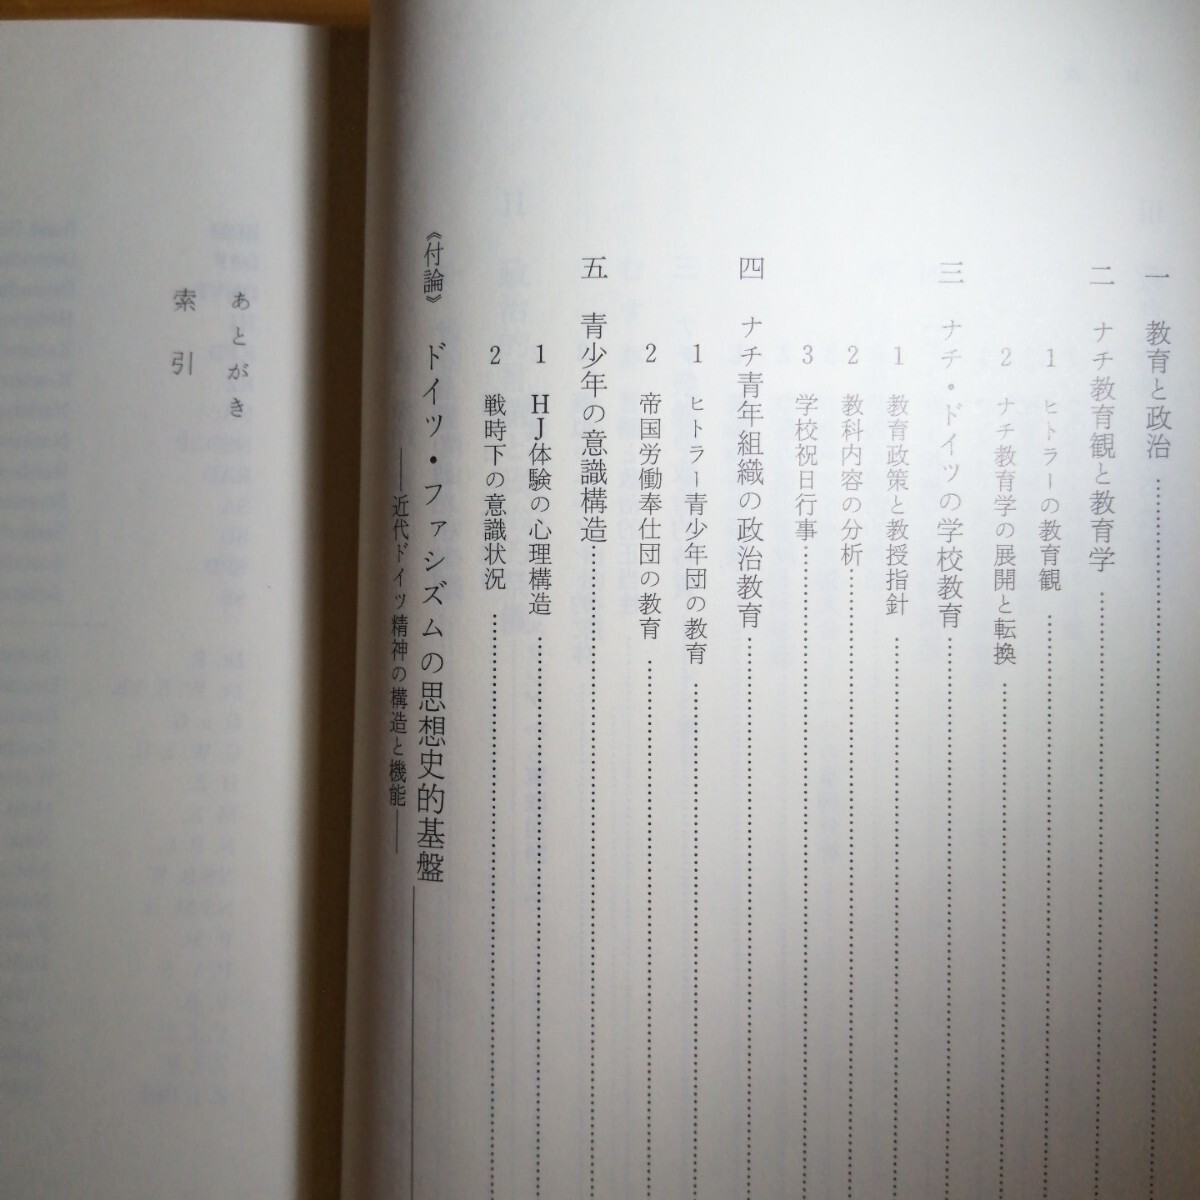 一 教育と政治
二 ナチ教育観と教育学
1 ヒトラーの教育観
2 ナチ教育学の展開と転換
三 ナチ・ドイツの学校教育
1 教育政策と教授指針
2 教科内容の分析
3 学校祝日行事
四 ナチ青年組織の政治教育
1 ヒトラー青少年団の教育
2 帝国労働奉仕団の教育
五 青少年の意識構造
1 HJ体験の心理構造
2 戦時下の意識状況
《付論》 ドイツ・ファシズムの思想史的基盤
——近代ドイツ精神の構造と機能——
あとがき
索引